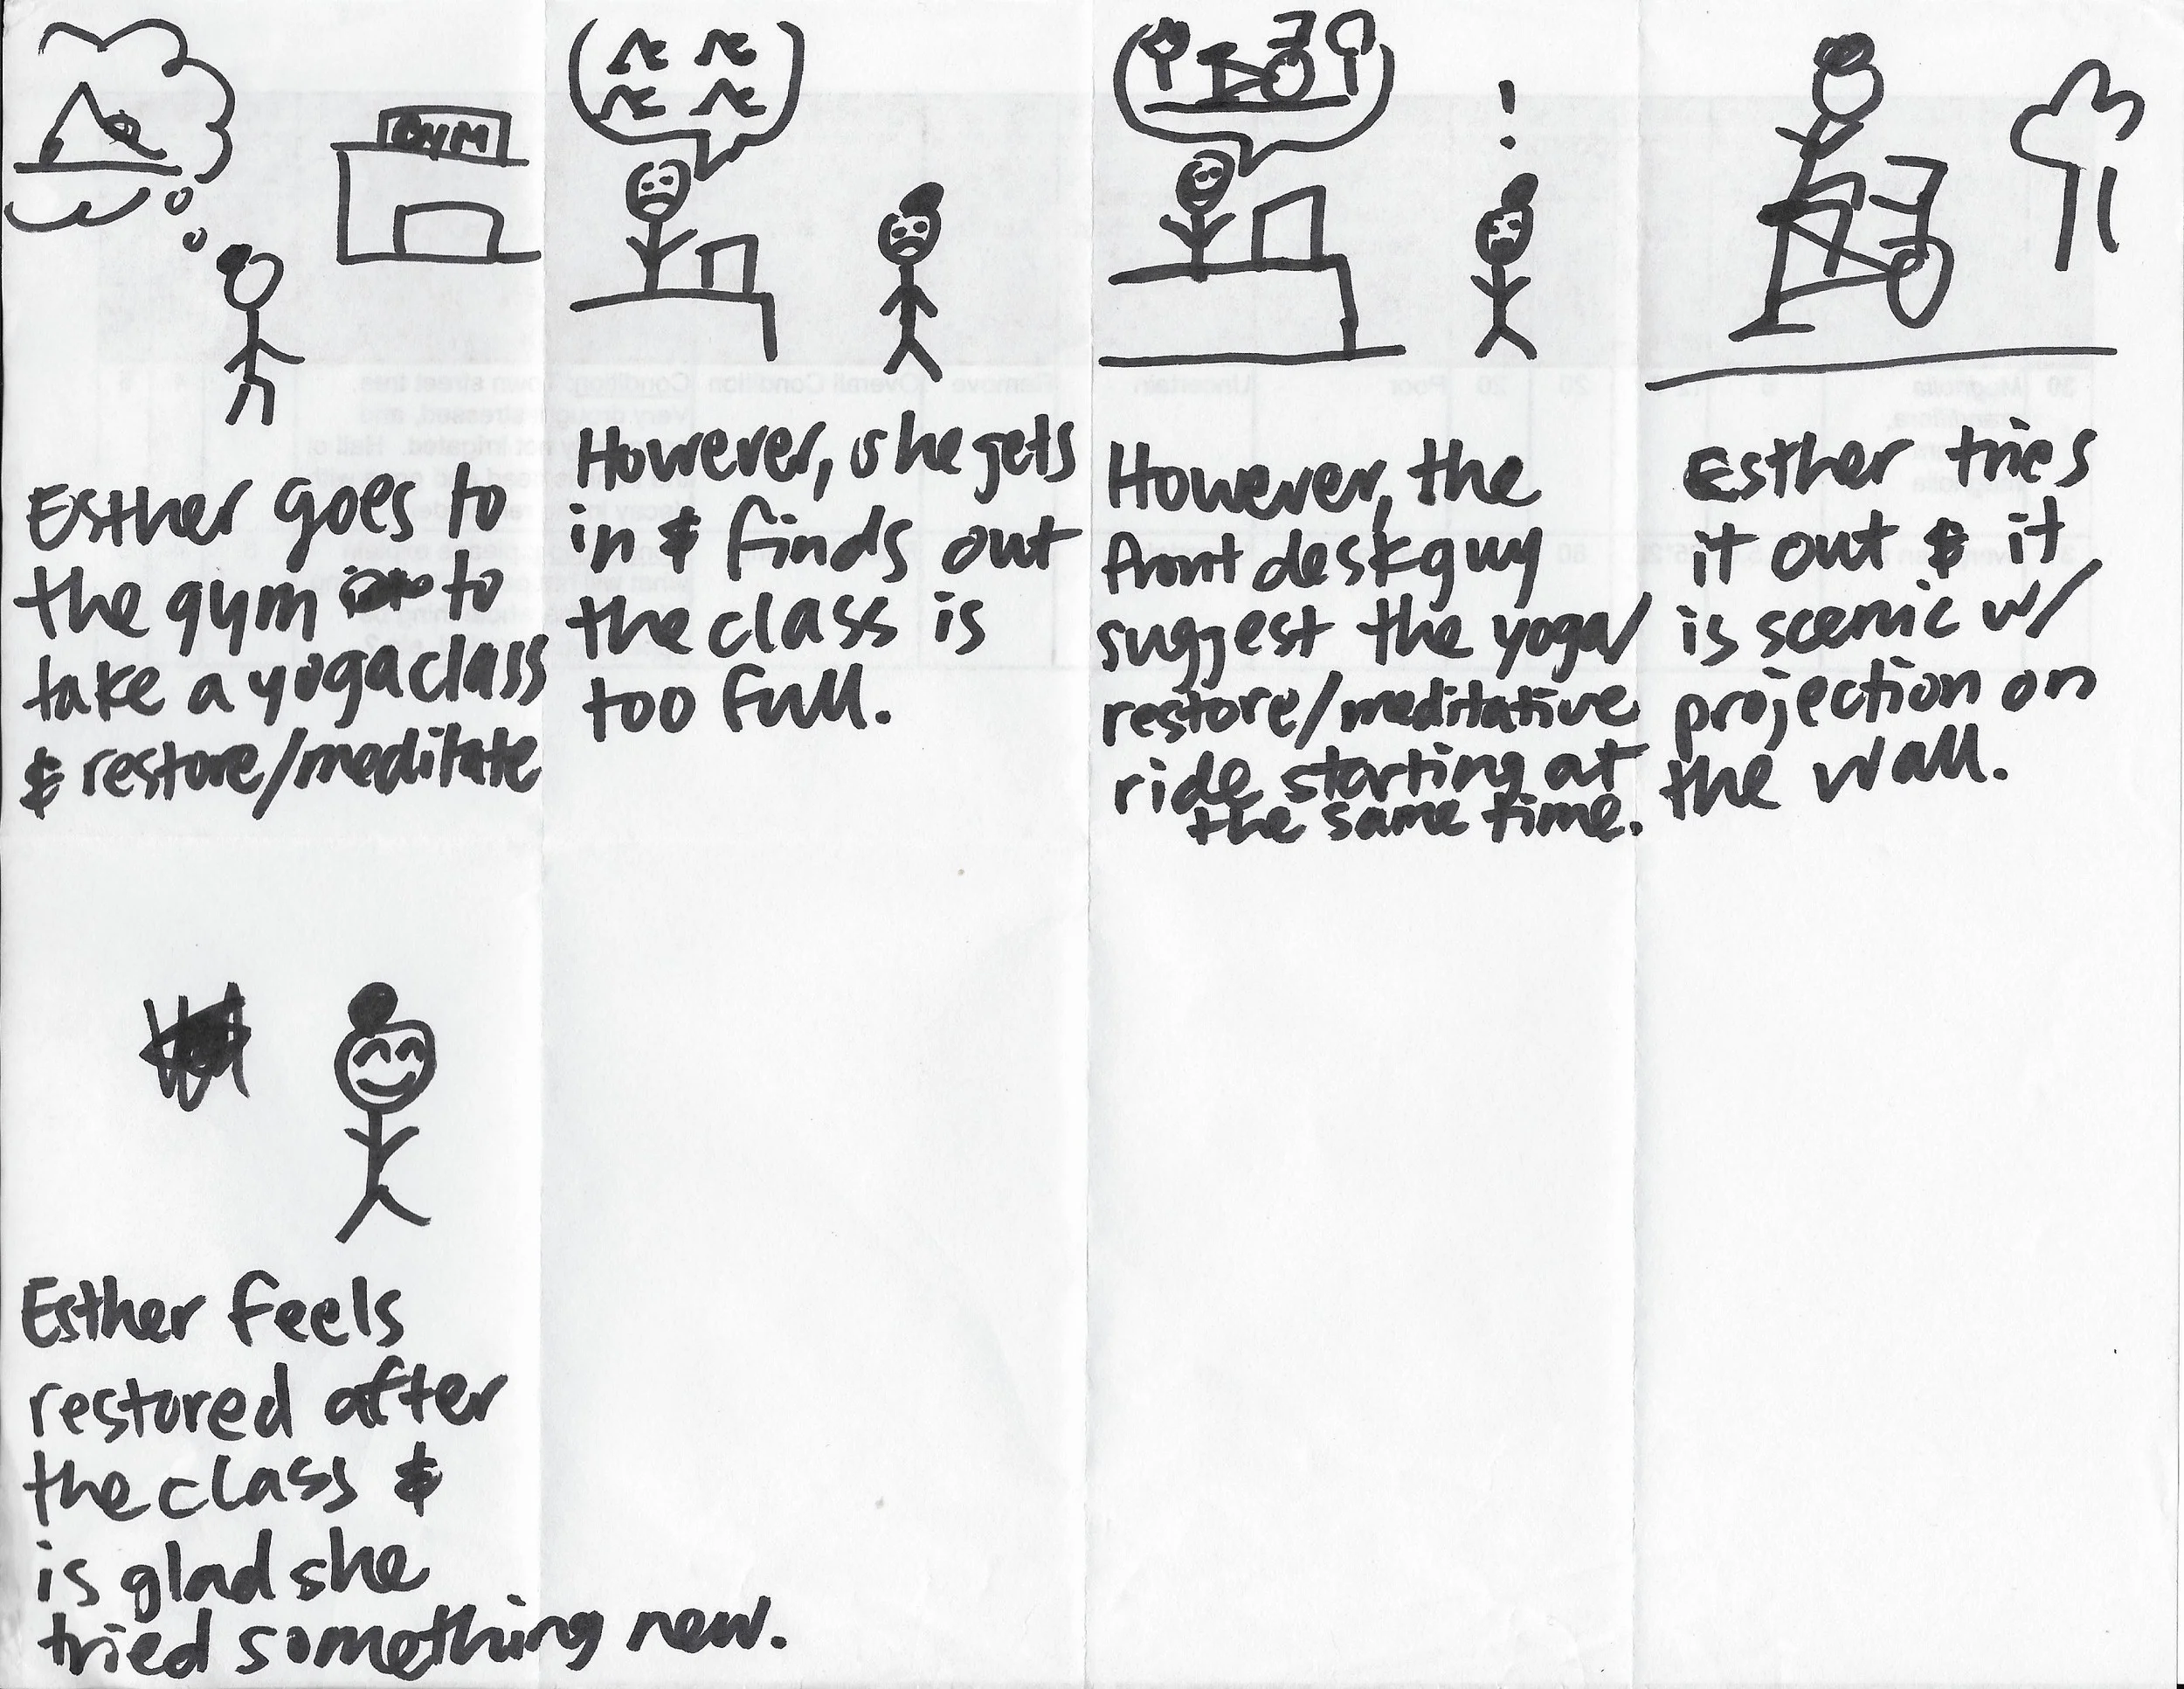 GYM
Esther goes to
the gym to
take a yoga class
& restore/meditate
However, she gets
in & finds out
the class is
too full.
However, the
front desk guy
suggest the yoga/
restore/meditative
ride starting at
the same time.
Esther tries
it out & it
is scenic w/
projection on
the wall.
Esther feels
restored after
the class &
is glad she
tried something new.